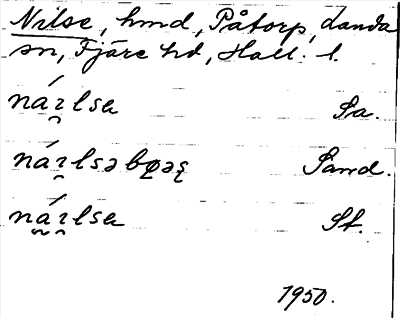 Nilse, hmd, Påtorp, Landa
sn, Fjäre hd, Hall. l.
ná̱ɿlsa Sa.
náɿ̯lsəbo̱əs̨ Sand.
ná̰ɿ̯lsa St.
1950.